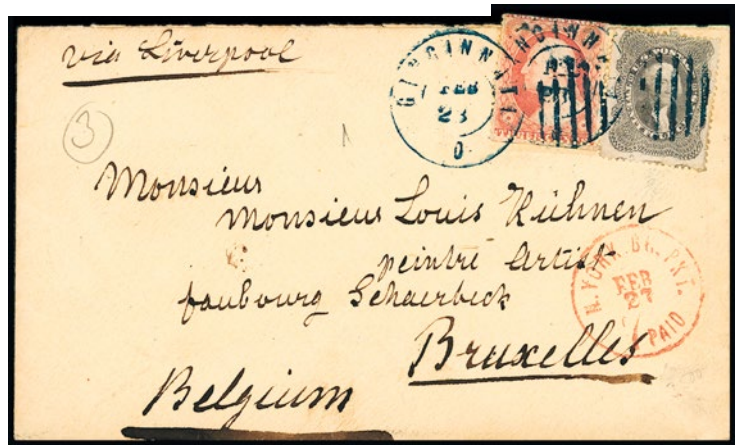 via Liverpool
CINCINN
FEB
23
O.
CINCINN
3
Monsieur
Monsieur Louis Kühnen
peintre Artist
faubourg Schaerbeck
Bruxelles
Belgium
N. YORK BR. PKT.
FEB
27
PAID